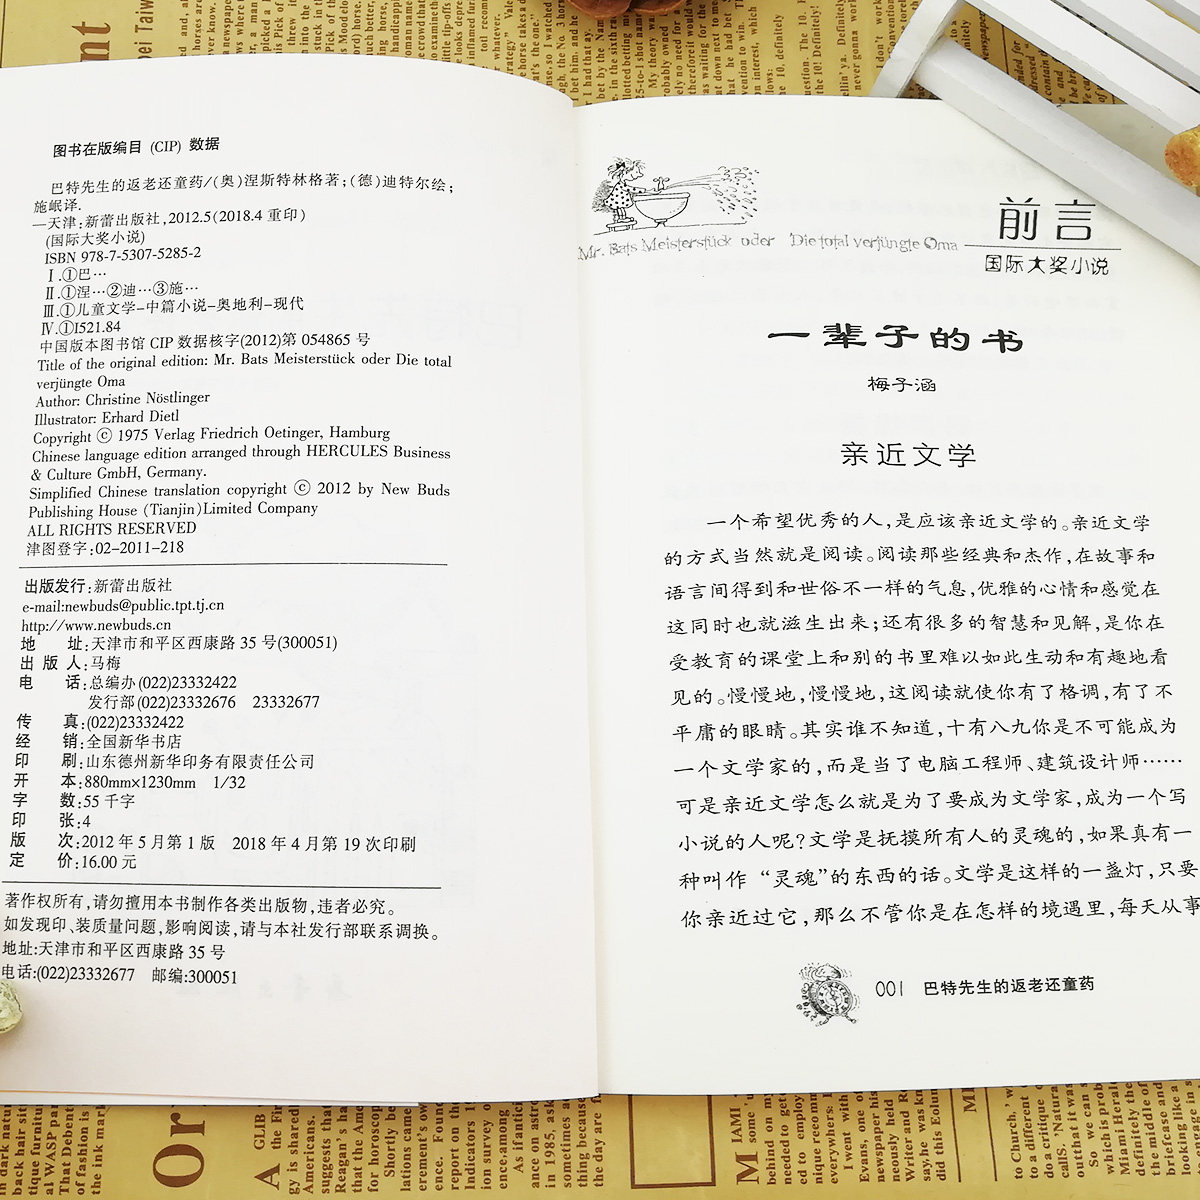 图书在版编目 (CIP) 数据
巴特先生的返老还童药/(奥)涅斯特林格著;(德)迪特尔绘;
施岷译.
—天津:新蕾出版社,2012.5(2018.4 重印)
(国际大奖小说)
ISBN 978-7-5307-5285-2
Ⅰ.①巴…
Ⅱ.①涅…②迪…③施…
Ⅲ.①儿童文学-中篇小说-奥地利-现代
Ⅳ.①I521.84
中国版本图书馆 CIP 数据核字(2012)第 054865 号
Title of the original edition: Mr. Bats Meisterstück oder Die total
verjüngte Oma
Author: Christine Nöstlinger
Illustrator: Erhard Dietl
Copyright ⓒ 1975 Verlag Friedrich Oetinger, Hamburg
Chinese language edition arranged through HERCULES Business
& Culture GmbH, Germany.
Simplified Chinese translation copyright ⓒ 2012 by New Buds
Publishing House (Tianjin)Limited Company
ALL RIGHTS RESERVED
津图登字:02-2011-218
出版发行:新蕾出版社
e-mail:newbuds@public.tpt.tj.cn
http://www.newbuds.cn
地 址:天津市和平区西康路 35 号(300051)
出 版 人:马梅
电 话:总编办(022)23332422
发行部(022)23332676 23332677
传 真:(022)23332422
经 销:全国新华书店
印 刷:山东德州新华印务有限责任公司
开 本:880mm×1230mm 1/32
字 数:55 千字
印 张:4
版 次:2012 年 5 月第 1 版 2018 年 4 月第 19 次印刷
定 价:16.00 元
著作权所有,请勿擅用本书制作各类出版物,违者必究。
如发现印、装质量问题,影响阅读,请与本社发行部联系调换。
地址:天津市和平区西康路 35 号
电话:(022)23332677 邮编:300051
Mr. Bats Meisterstück oder Die total verjüngte Oma
前言
国际大奖小说
一辈子的书
梅子涵
亲近文学
一个希望优秀的人,是应该亲近文学的。亲近文学
的方式当然就是阅读。阅读那些经典和杰作,在故事和
语言间得到和世俗不一样的气息,优雅的心情和感觉在
这同时也就滋生出来;还有很多的智慧和见解,是你在
受教育的课堂上和别的书里难以如此生动和有趣地看
见的。慢慢地,慢慢地,这阅读就使你有了格调,有了不
平庸的眼睛。其实谁不知道,十有八九你是不可能成为
一个文学家的,而是当了电脑工程师、建筑设计师……
可是亲近文学怎么就是为了要成为文学家,成为一个写
小说的人呢?文学是抚摸所有人的灵魂的,如果真有一
种叫作“灵魂”的东西的话。文学是这样的一盏灯,只要
你亲近过它,那么不管你是在怎样的境遇里,每天从事
001 巴特先生的返老还童药